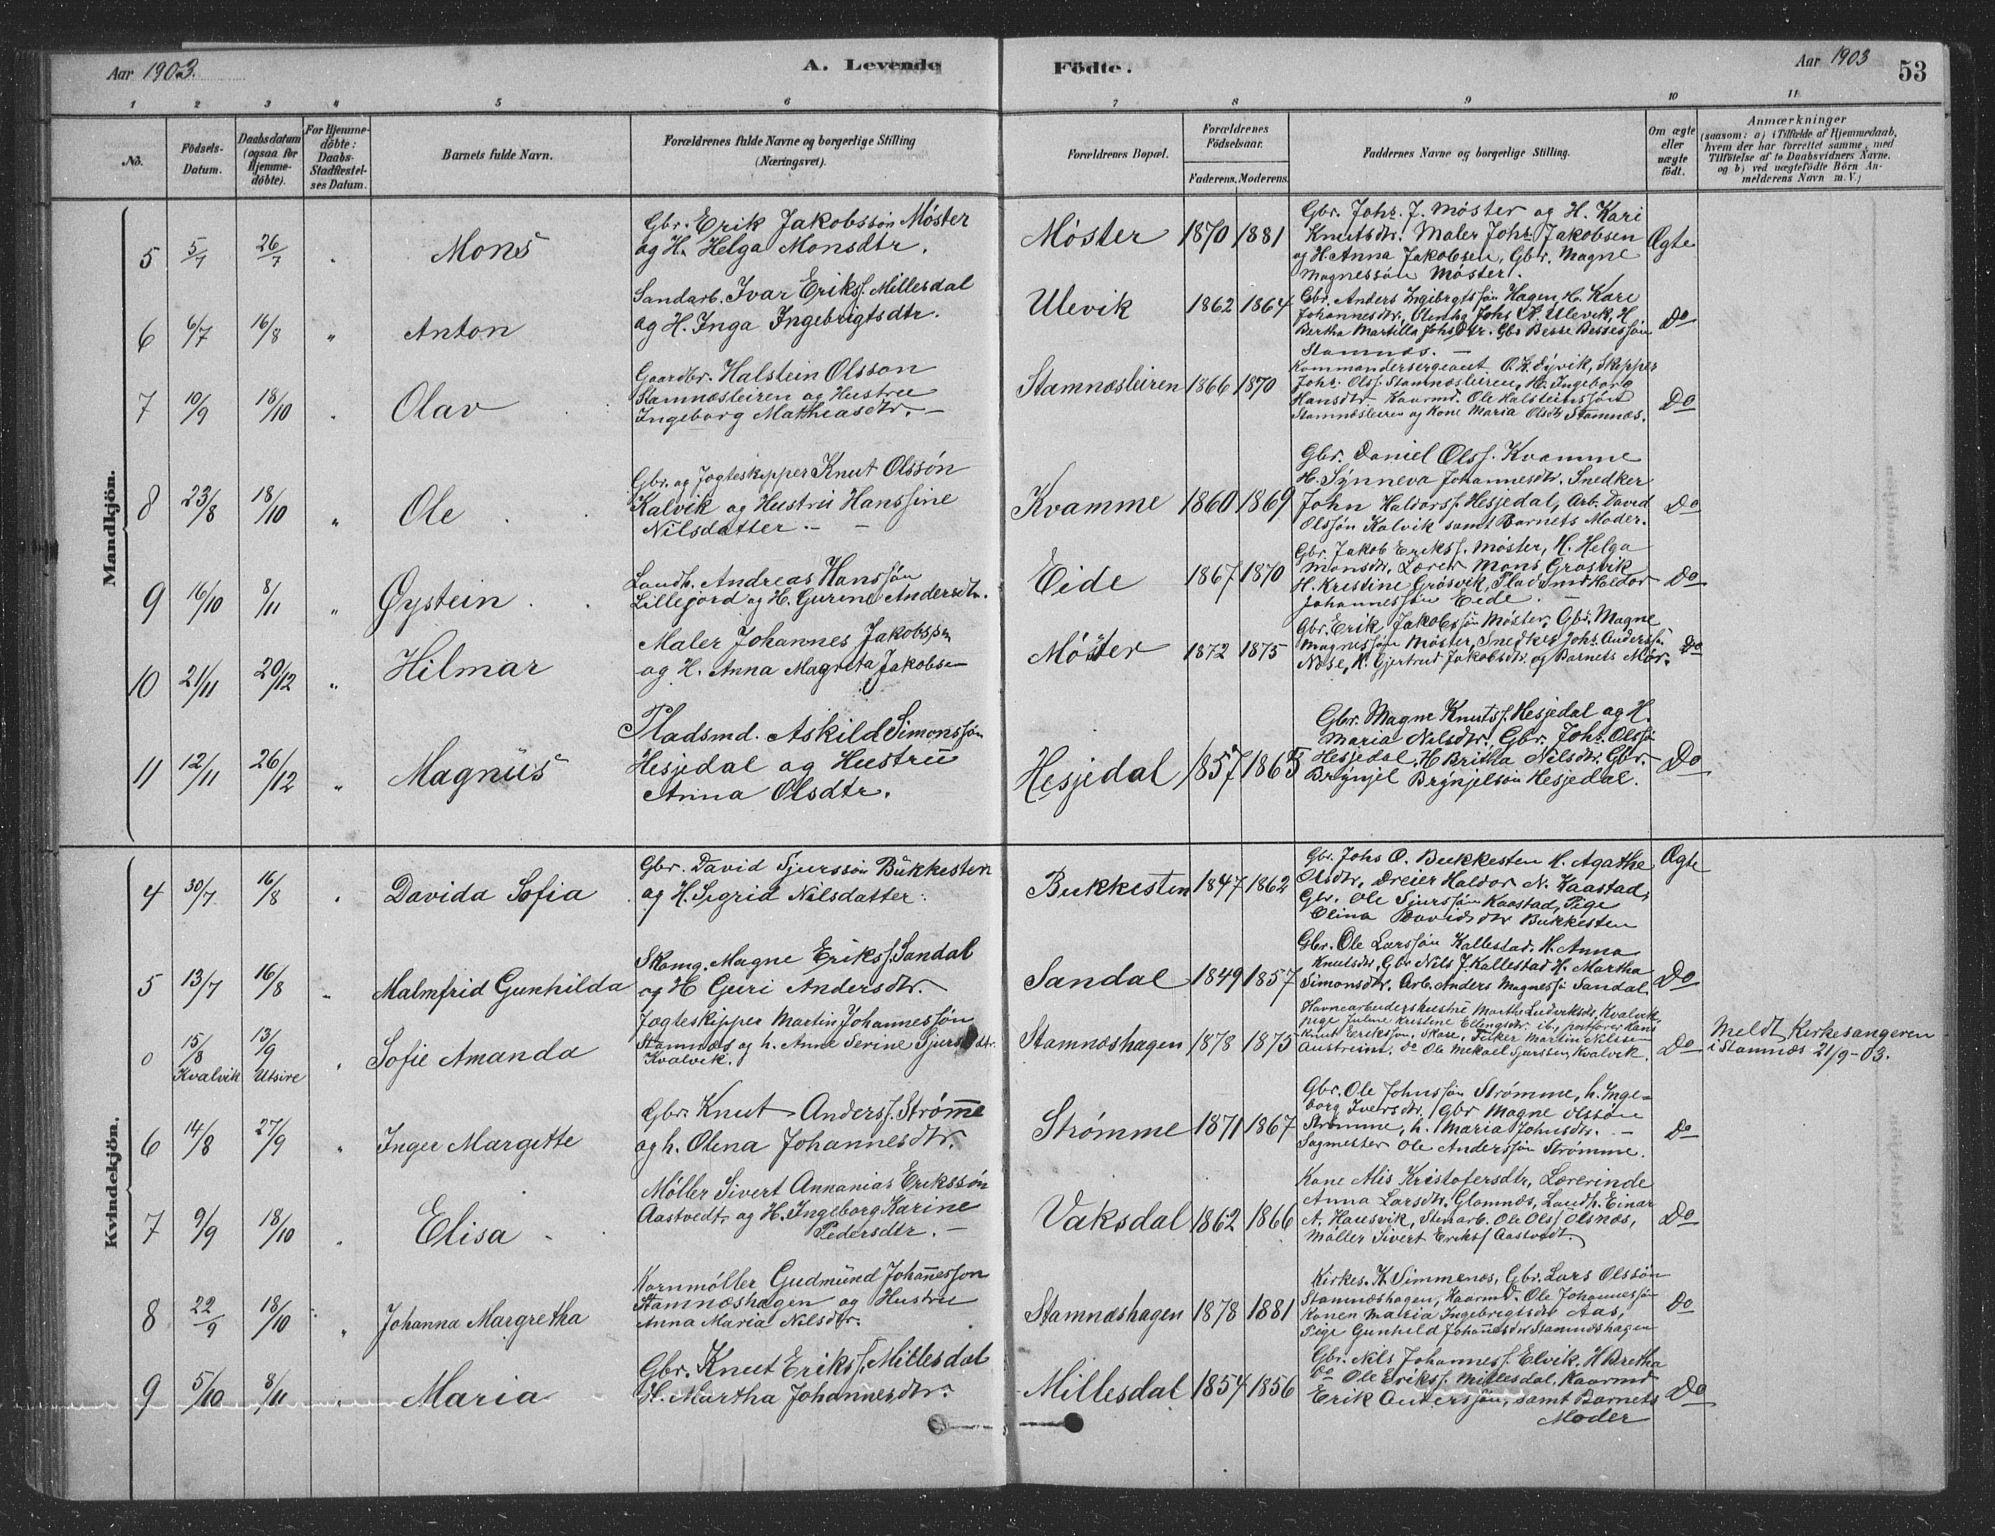 Aar 1903. A. Levende Födte. Aar 1903 53
1 2 3 4 5 6 7 8 9 10 11
No. Födsels-Datum. Daabsdatum (ogsaa for Hjemmedöbte). For Hjemmedöbte: Daabs-Stadfæstelses Datum. Barnets fulde Navn. Forældrenes fulde Navne og borgerlige Stilling (Næringsvei). Forældrenes Bopæl. Forældrenes Födselsaar. Faderens. Moderens. Faddernes Navne og borgerlige Stilling. Om ægte eller uægte födt. Anmærkninger
(saasom: a) i Tilfælde af Hjemmedaab, hvem der har forrettet samme, med Tilföielse af to Daabsvidners Navne. og b) ved uægtefödte Börn Anmelderens Navn m. V.)
Mandkjön.
5 5/7 26/7 Mons
Gbr. Erik Jakobssön Möster
og H. Helga Monsdtr.
Möster 1870 1881
Gbr. Johs. J. Möster og H. Kari
Knutsdtr. Maler Johs Jakobsen
og H. Anna Jakobsen, Gbr. Magne
Magnessön Möster.
Ægte
6 6/7 16/8 " Anton
Sandarb. Ivar Eriks. Millesdal
og H. Inga Ingebrigtsdtr.
Ulevik 1862 1864
Gbr. Anders Ingibrgtssön Hagen, H. Kari
Johannesdtr, Johs Ulevik, H.
Bertha Martilla Johsdtr. Gbr Besse Bessessön
Stamnæs. —
Do
7 10/9 18/10 Olav
Gaardbr. Halstein Olsson
Stamnæsleiren og Hustru
Ingeborg Mathiasdtr. —
Stamnæsleiren 1866 1870
Kommandersergeant O. K. Dyvik, Skipper
Johs. Olss. Stamnæsleiren, H. Ingeborg
Hansdtr. Kaarmd. Ole Halsteinssön
Stamnæsleiren og Kone Maria Olsdtr Stamnæs.
Do
8 23/8 18/10 " Ole
Gbr. og Jagteskipper Knut Olssön
Kalvik og Hustru Hanssine
Nilsdatter. —
Kvamme 1860 1869
Gbr. Daniel Olss. Kvamme
H. Synneva Johannesdtr. Snedker
John Haldorss. Hesjedal, Arb. David
Olssön Kalvik samt Barnets Moder.
Do
9 16/10 8/11 " Øystein
Landh. Andreas Hanssön
Lillejord og H. Gurine Andersdtr.
Eide 1867 1870
Gbr. Jakob Erikss. Möster, H. Helga
Monsdtr. Lærer Mons Grøsvik
H. Kristine Grøsvik, Pladsmd Haldor
Johannessön Eide. —
Do
10 21/11 20/12 " Hilmar
Maler Johannes Jakobsen
og H. Anna Magreta Jakobsen
Møster 1872 1875
Gbr. Erik Jakobssön Möster, Gbr. Magne
Magnessön Möster, Snedker Johs. Anderssön
Nose, H. Gjertrud Jakobsdtr og Barnets Mor.
Do
11 12/11 26/12 " Magnus
Pladsmd. Askild Simonssön
Hesjedal og Hustru
Anna Olsdtr.
Hesjedal 1857 1865
Gbr. Magne Knutss. Hesjedal og H.
Maria Nilsdtr. Gbr. Johs Olssö
Hesjedal, H Britha Nilsdtr. Gbr.
Brynjel Brynjelssön Hesjedal.
Do
Kvindekjön.
4 30/7 16/8 Davida Sofia
Gbr. David Sjurssön Bukkesten
og H. Sigrid Nilsdatter.
Bukkesten 1847 1862
Gbr. Johs O. Bukkesten H. Agathe
Olsdtr, Dreier Haldor N. Kaastad,
Gbr. Ole Sjurssön Kaastad, Pige
Olina Davidsdtr Bukkesten
Ægte
5 13/7 16/8 " Malmfrid Gunhilda
Skomg. Magne Eriks. Sandal
og H Guri Andersdtr.
Sandal 1849 1857
Gbr. Ole Larssön Kallestad, H. Anna
Knutsdtr, Gbr Nils J. Kallestad H. Martha
Simonsdtr. Arb. Anders Magnessö Sandal.
Do
0 15/8 Kvalvik 13/9 Utsire Sofie Amanda
Jagteskipper Martin Johannessön
Stamnæs og h. Anne Serine Sjursdtr
Kvalvik.
Stamnæshagen 1878 1875
Havnearbeiderhustru Marthe Ludviksdtr, Kvalvik
pige Juline Kristine Ellingsdtr ib., postfører Hans
Knut Eriksson, Skare, Fisker Martin Nilssen
Austreim, do Ole Mekael Sjurssen, Kvalvik.
Do
Meldt Kirkesangeren
i Stamnæs 21/9-03.
6 14/8 27/9 " Inger Margitte
Gbr. Knut Anderss. Strømme
og h. Olena Johannesdtr.
Strømme 1871 1867
Gbr. Ole Johnssön Strømme, h. Inge-
borg Iversdtr, Gbr Magne Olssön
Strømme, h. Maria Johnsdtr. —
Sagmester Ole Anderssön Strømme.
Do
7 9/9 18/10 " Elisa
Møller Sivert Annanias Erikssön
Aastvedt og H. Ingeborg Karine
Pedersdtr. —
Vaksdal 1862 1866
Kone Alis Kristofersdtr, Lærerinde
Anna Larsdtr. Glamnæs, Landh. Einar
A. Hausvik, Stenarb. Ole Olss Olsnæs,
Møller Sivert Erikss Aastvedt.
Do
8 22/9 18/10 " Johanna Margretha
Kornmøller Gudmund Johannesson
Stamnæshagen og Hustru
Anna Maria Nilsdtr.
Stamnæshagen 1878 1881
Kirkes. K. Simmenæs, Gbr. Lars Olssön
Stamnæshagen, Kaarmd. Ole Johannessön
Konen Maria Ingebrigtsdtr Aas,
Pige Gunhild Johannesdtr Stamnæshagen
Do
9 5/10 8/11 Maria
Gbr. Knut Erikss. Millesdal
H. Martha Johannesdtr.
Millesdal 1854 1856
Gbr. Nils Johanness. Elvik, H Bretha
Do Ole Erikss. Millesdal, Kaarmd
Erik Anderssön, samt Barnets
Moder
Do